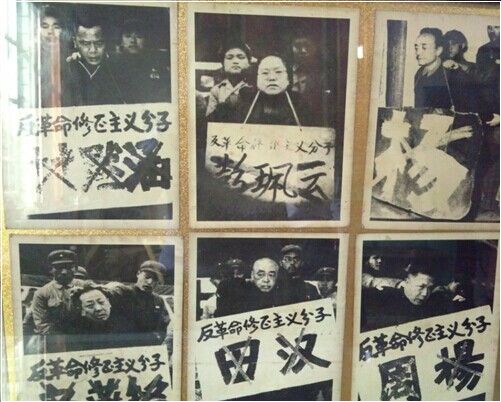 反革命修正主义分子
反革命修正主义分子
彭珮云
杨
反革命修正主义分子
反革命修正主义分子
田汉
反革命修正主义分子
周楊